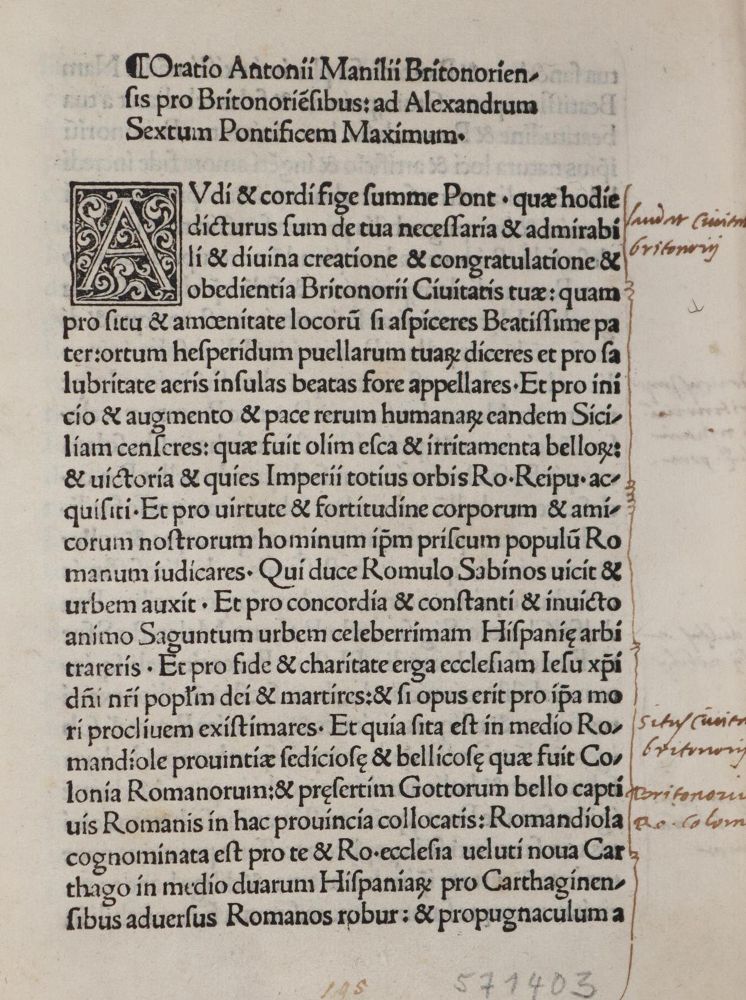 ⁋Oratio Antonii Manilii Britonorien⸗
ſis pro Britonoriẽſibus: ad Alexandrum
Sextum Pontificem Maximum.
AVdi & cordi fige ſumme Pont . quæ hodie
dicturus ſum de tua neceſſaria & admirabi
li & diuina creatione & congratulatione &
obedientia Britonorii Ciuitatis tuæ: quam
pro ſitu & amœnitate locorũ ſi aſpiceres Beatiſſime pa
ter:ortum heſperidum puellarum tuaꝝ diceres et pro ſa
lubritate aeris inſulas beatas fore appellares.Et pro ini
cio & augmento & pace rerum humanaꝝ eandem Sici⸗
liam cenſeres: quæ fuit olim eſca & irritamenta belloꝝ:
& uictoria & quies Imperii totius orbis Ro.Reipu. ac⸗
quiſiti.Et pro uirtute & fortitudine corporum & ami⸗
corum noſtrorum hominum ip̃m priſcum populũ Ro
manum iudicares. Qui duce Romulo Sabinos uicit &
urbem auxit . Et pro concordia & conſtanti & inuicto
animo Saguntum urbem celeberrimam Hiſpanię arbi
trareris . Et pro fide & charitate erga eccleſiam Ieſu xp̃i
dñi nr̃i popl̃m dei & martires:& ſi opus erit pro ip̃a mo
ri procliuem exiſtimares. Et quia ſita eſt in medio Ro⸗
mandiole prouintiæ ſedicioſę & bellicoſę quæ fuit Co⸗
lonia Romanorum:& pręſertim Gottorum bello capti
uis Romanis in hac prouincia collocatis: Romandiola
cognominata eſt pro te & Ro.eccleſia ueluti noua Car
thago in medio duarum Hiſpaniaꝝ pro Carthaginen⸗
ſibus aduerſus Romanos robur : & propugnaculum a
britonorij
Situs
britonorij
Ro. Colon
195
571403